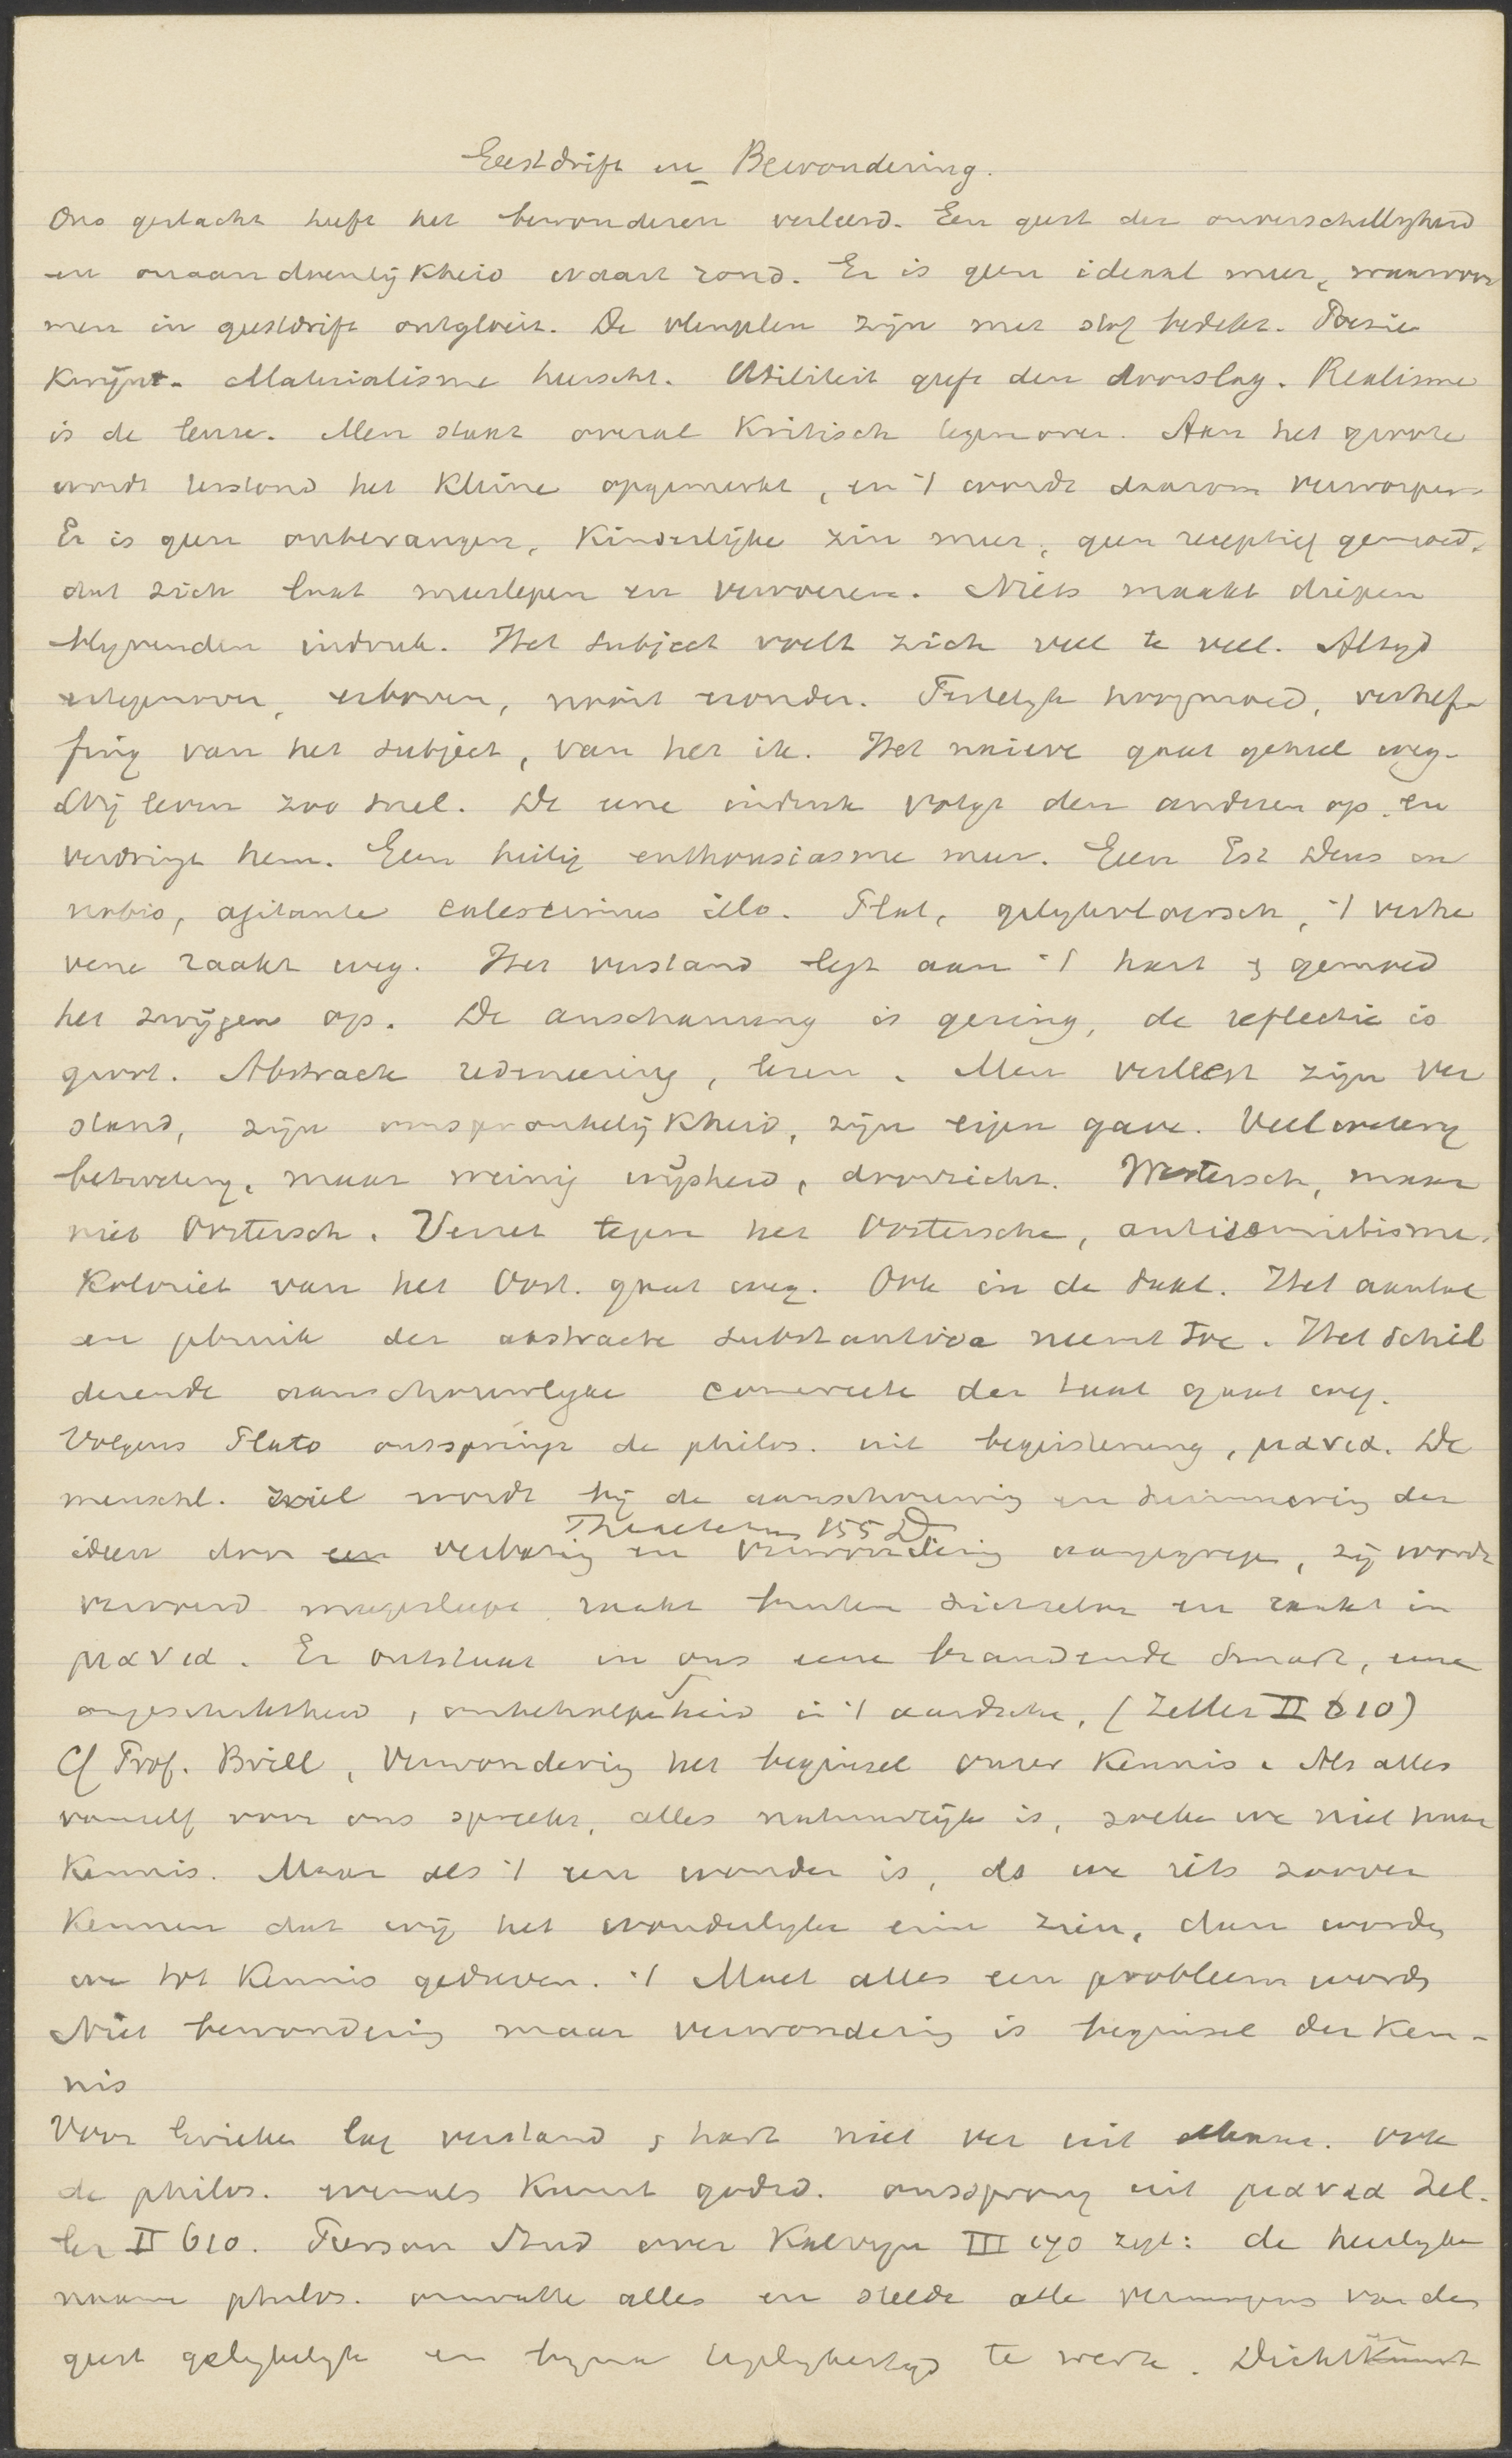 Geestdrift en Bewondering.
Ons geslacht heeft het bewonderen verleerd. Een geest der onverschilligheid
en onaandoenlijkheid waart rond. Er is geen ideaal meer, waarvoor
men in geestdrift ontgloeit. De vleuglen zijn met stof bedekt. Poesie
kwijnt. Materialisme heerscht. Utiliteit geeft den doorslag. Realisme
is de leuze. Men staat overal kritisch tegenover. Aan het groote
wordt terstond het kleine opgemerkt, en 't wordt daarom verworpen.
Er is geen onbevangen, kinderlijke zin meer, geen receptief gemoed,
dat zich laat meeslepen en vervoeren. Niets maakt diepen
blijvenden indruk. Het subject voelt zich veel te veel. Altijd
ertegenover, erboven, nooit eronder. Feitelijk hoogmoed, verhef-
fing van het subject, van het ik. Het naieve gaat geheel weg.
Wij leven zoo snel. De eene indruk volgt den anderen op en
verdringt hem. Geen heilig enthousiasme meer. Geen Est Deus in
nobis, agitante calescimus illo. Plat, gelijkvloersch, 't verhe
vene raakt weg. Het verstand legt aan 't hart & gemoed
het zwijgen op. De anschauung is gering, de reflectie is
groot. Abstracte redeneering, lezen. Men verleest zijn ver
stand, zijn oorspronkelijkheid, zijn eigen gave. Veelweterij
betweterij, maar weinig wijsheid, doorzicht. Westersch, maar
niet Oostersch. Verzet tegen het Oostersche, antisemietisme.
Koloriet van het Oost. gaat weg. Ook in de taal. Het aantal
en gebruik der abstracte substantiva neemt toe. Het schil
derende aanschouwlijke concrete der taal gaat weg.
Volgens Plato ontspringt de philos. uit begeistering, μανια. De
menschl. ziel wordt bij de aanschouwing en herinnering der
Theaetetus 155 D.
ideen door een verbazing en verwondering aangegrepen, zij wordt
vervoerd meegesleept raakt buiten zichzelve en raakt in
μανια. Er ontstaat in ons eene brandende smart, eene
ongeschiktheid, onbeholpenheid in 't aardsche, (Zeller II 610)
Cf Prof. Brill, Verwondering het beginsel onzer kennis. Als alles
vanzelf voor ons spreekt, alles natuurlijk is, zoeken we niet naar
kennis. Maar als 't een wonder is, als we iets zoover
kennen dat wij het wonderlijke erin zien, dan worden
we tot kennis gedreven. 't Moet alles een probleem worden
Niet bewondering maar verwondering is beginsel der ken-
nis
Voor Grieken lag verstand & hart niet ver uit elkaar. Ook
de philos. evenals kunst godsd. ontsprong uit μανια Zel-
ler II 610. Pierson Stud over Kalvyn III zegt: de heerlijke
naam philos. omvatte alles en stelde alle vermogens van den
geest gelijkelijk en bijna tegelijkertijd te werk. Dichtkunst